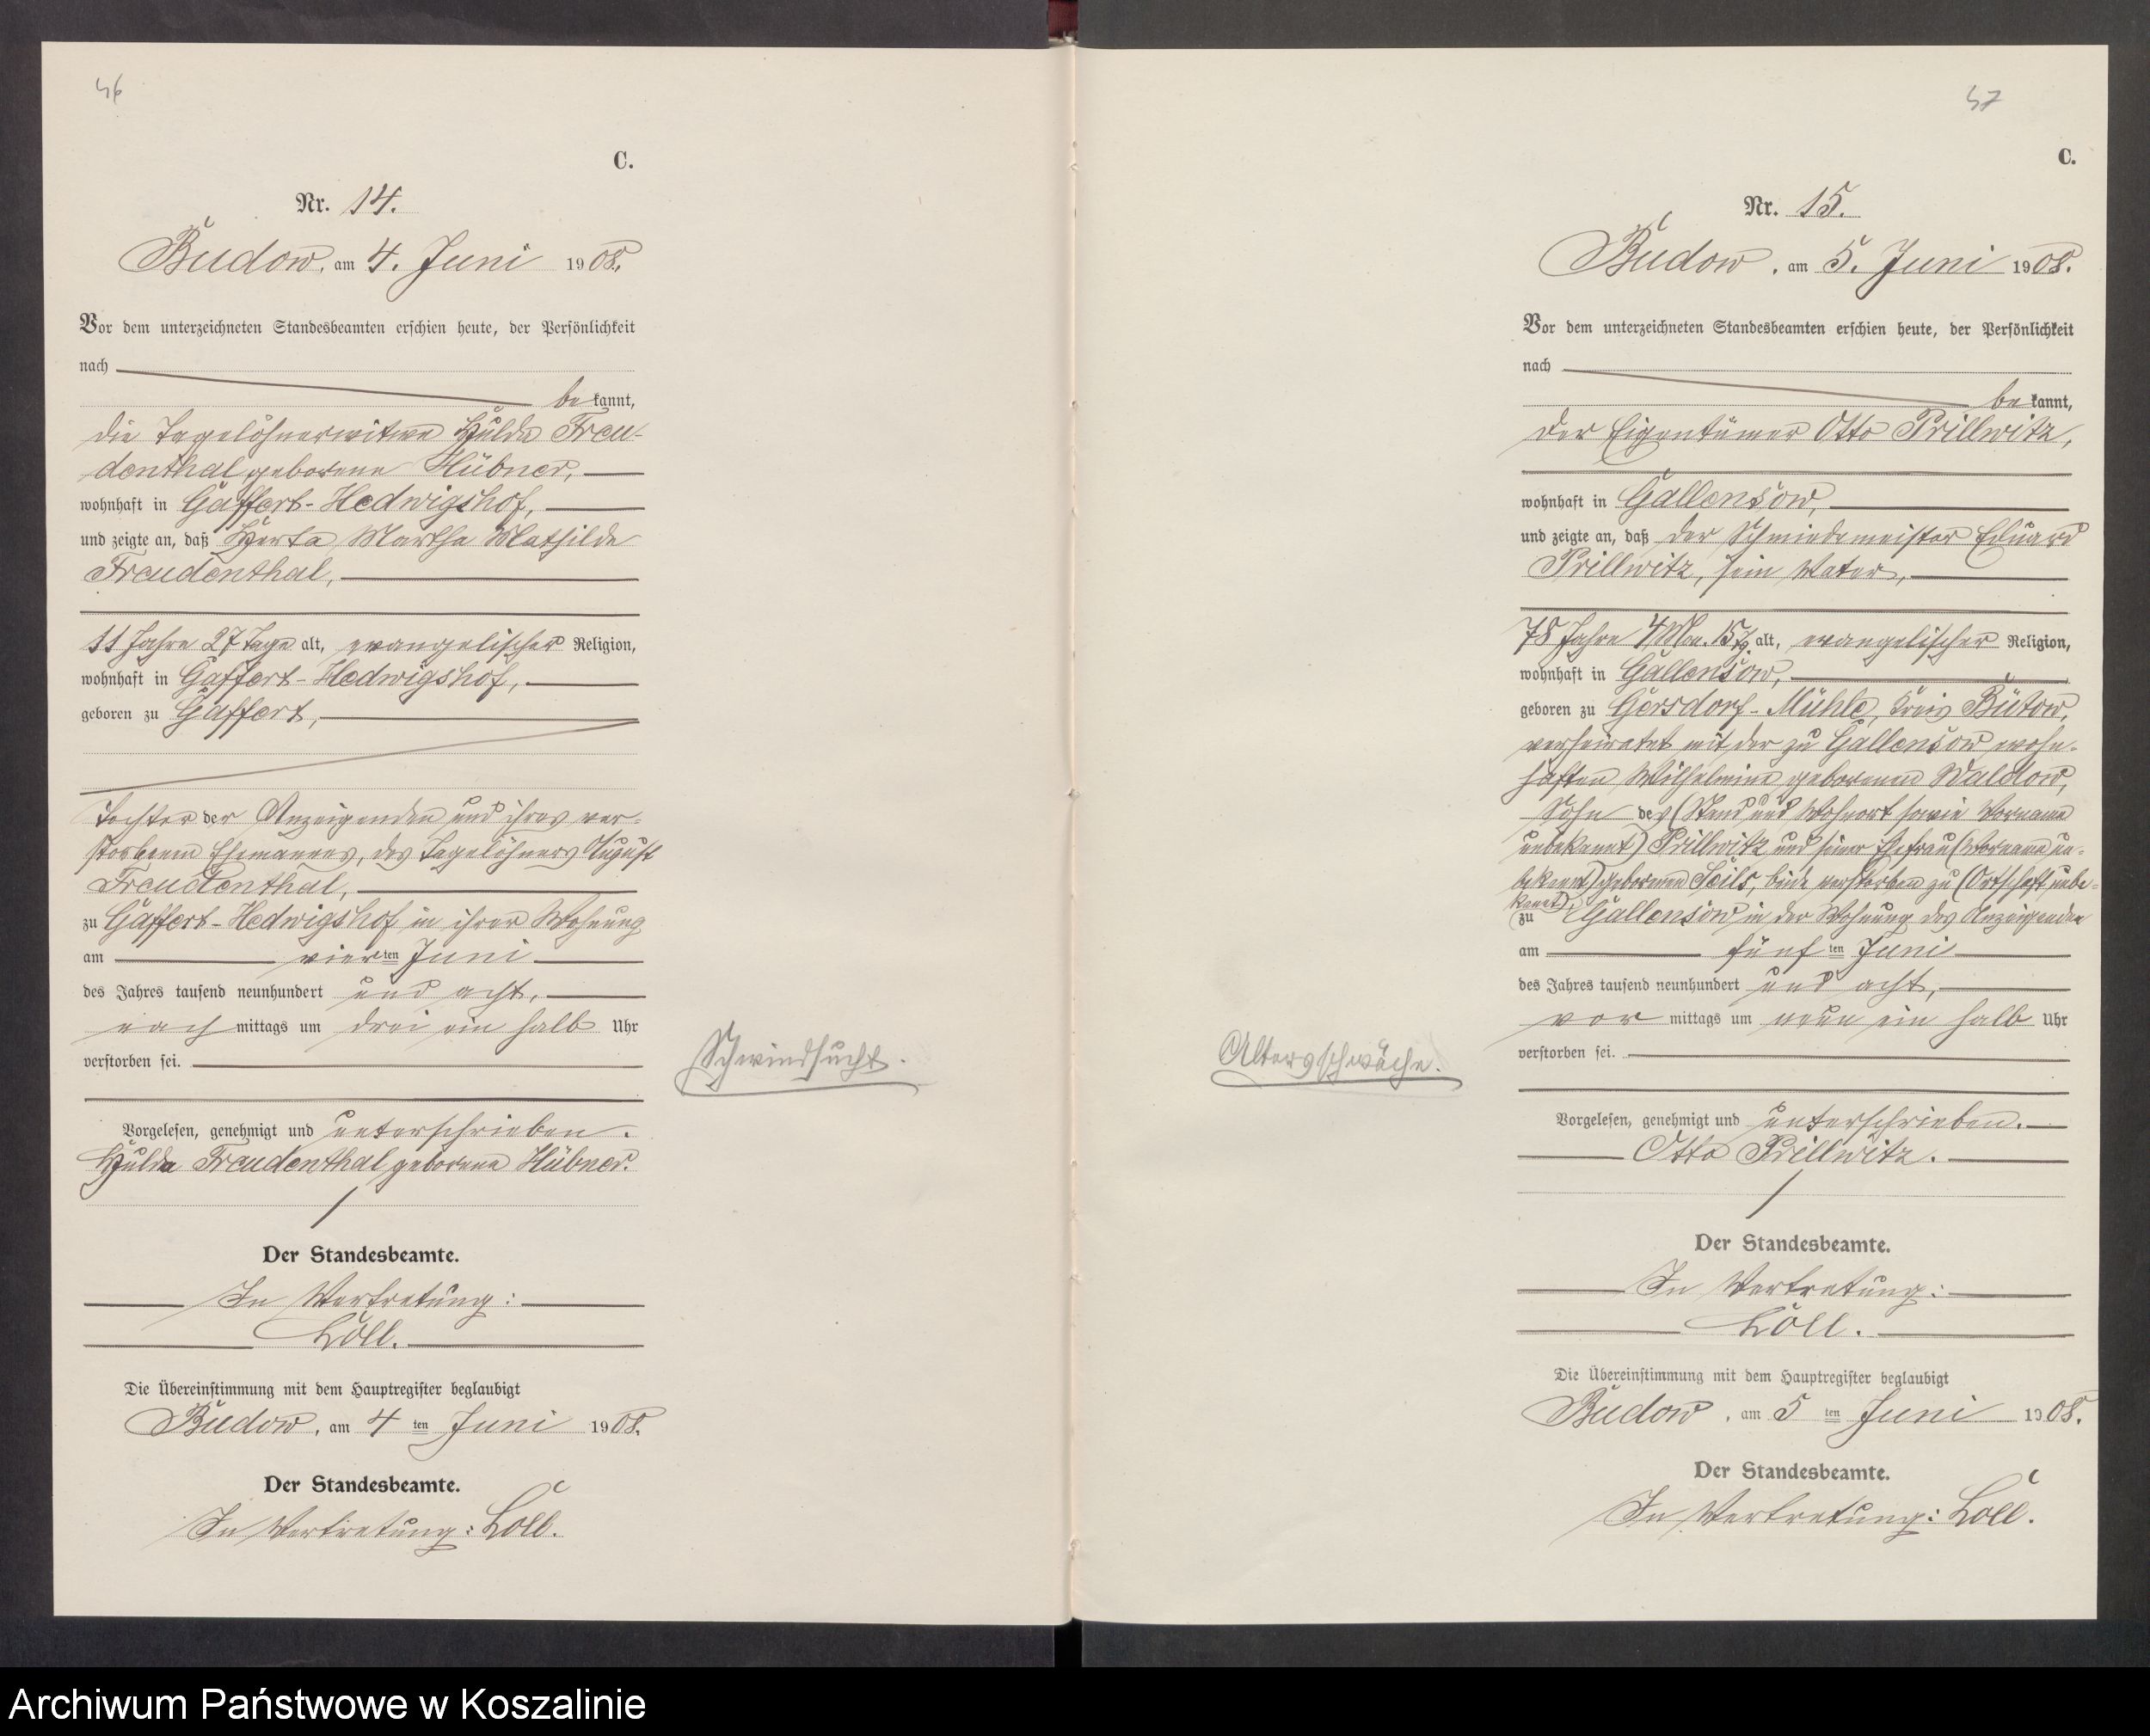 46
C.
Nr. 14.
Budow, am 4. Juni 1908.
Vor dem unterzeichneten Standesbeamten erschien heute, der Persönlichkeit
nach
be kannt,
die Tagelöhnerwitwe Hulda Freu-
denthal geborene Hübner,
wohnhaft in Gaffert-Hedwigshof,
und zeigte an, daß Herta Martha Mathilde
Freudenthal,
11 Jahre 27 Tage alt, evangelischer Religion,
wohnhaft in Gaffert-Hedwigshof,
geboren zu Gaffert,
Tochter der Anzeigenden und ihres ver-
storbenen Ehemannes, des Tagelöhners August
Freudenthal,
zu Gaffert-Hedwigshof in ihrer Wohnung
am vierten Juni
des Jahres tausend neunhundert und acht,
nach mittags um drei ein halb Uhr
verstorben sei.
Schwindsucht.
Vorgelesen, genehmigt und unterschrieben.
Hulda Freudenthal geborene Hübner.
Der Standesbeamte.
In Vertretung:
Löll.
Die Übereinstimmung mit dem Hauptregister beglaubigt
Budow, am 4ten Juni 1908.
Der Standesbeamte.
In Vertretung: Löll.
47
C.
Nr. 15.
Budow, am 5. Juni 1908.
Vor dem unterzeichneten Standesbeamten erschien heute, der Persönlichkeit
nach
be kannt,
der Eigentümer Otto Prillwitz,
wohnhaft in Gallensow,
und zeigte an, daß der Schmiedemeister Eduard
Prillwitz, sein Vater,
78 Jahre 4 Mon. 15 Tg. alt, evangelischer Religion,
wohnhaft in Gallensow,
geboren zu Gersdorf-Mühle, Kreis Bütow,
verheiratet mit der zu Gallensow wohn-
haften Wilhelmine geborenen Waldow,
Sohn des (Stand und Wohnort sowie Vorname
unbekannt) Prillwitz und seiner Ehefrau (Vorname un-
bekannt) geborenen Seils, beide verstorben zu (Ortschaft unbe-
kannt),
zu Gallensow in der Wohnung des Anzeigenden
am fünften Juni
des Jahres tausend neunhundert und acht,
vor mittags um neun ein halb Uhr
verstorben sei.
Altersschwäche.
Vorgelesen, genehmigt und unterschrieben.
Otto Prillwitz.
Der Standesbeamte.
In Vertretung:
Löll.
Die Übereinstimmung mit dem Hauptregister beglaubigt
Budow, am 5ten Juni 1908.
Der Standesbeamte.
In Vertretung: Löll.
Archiwum Państwowe w Koszalinie